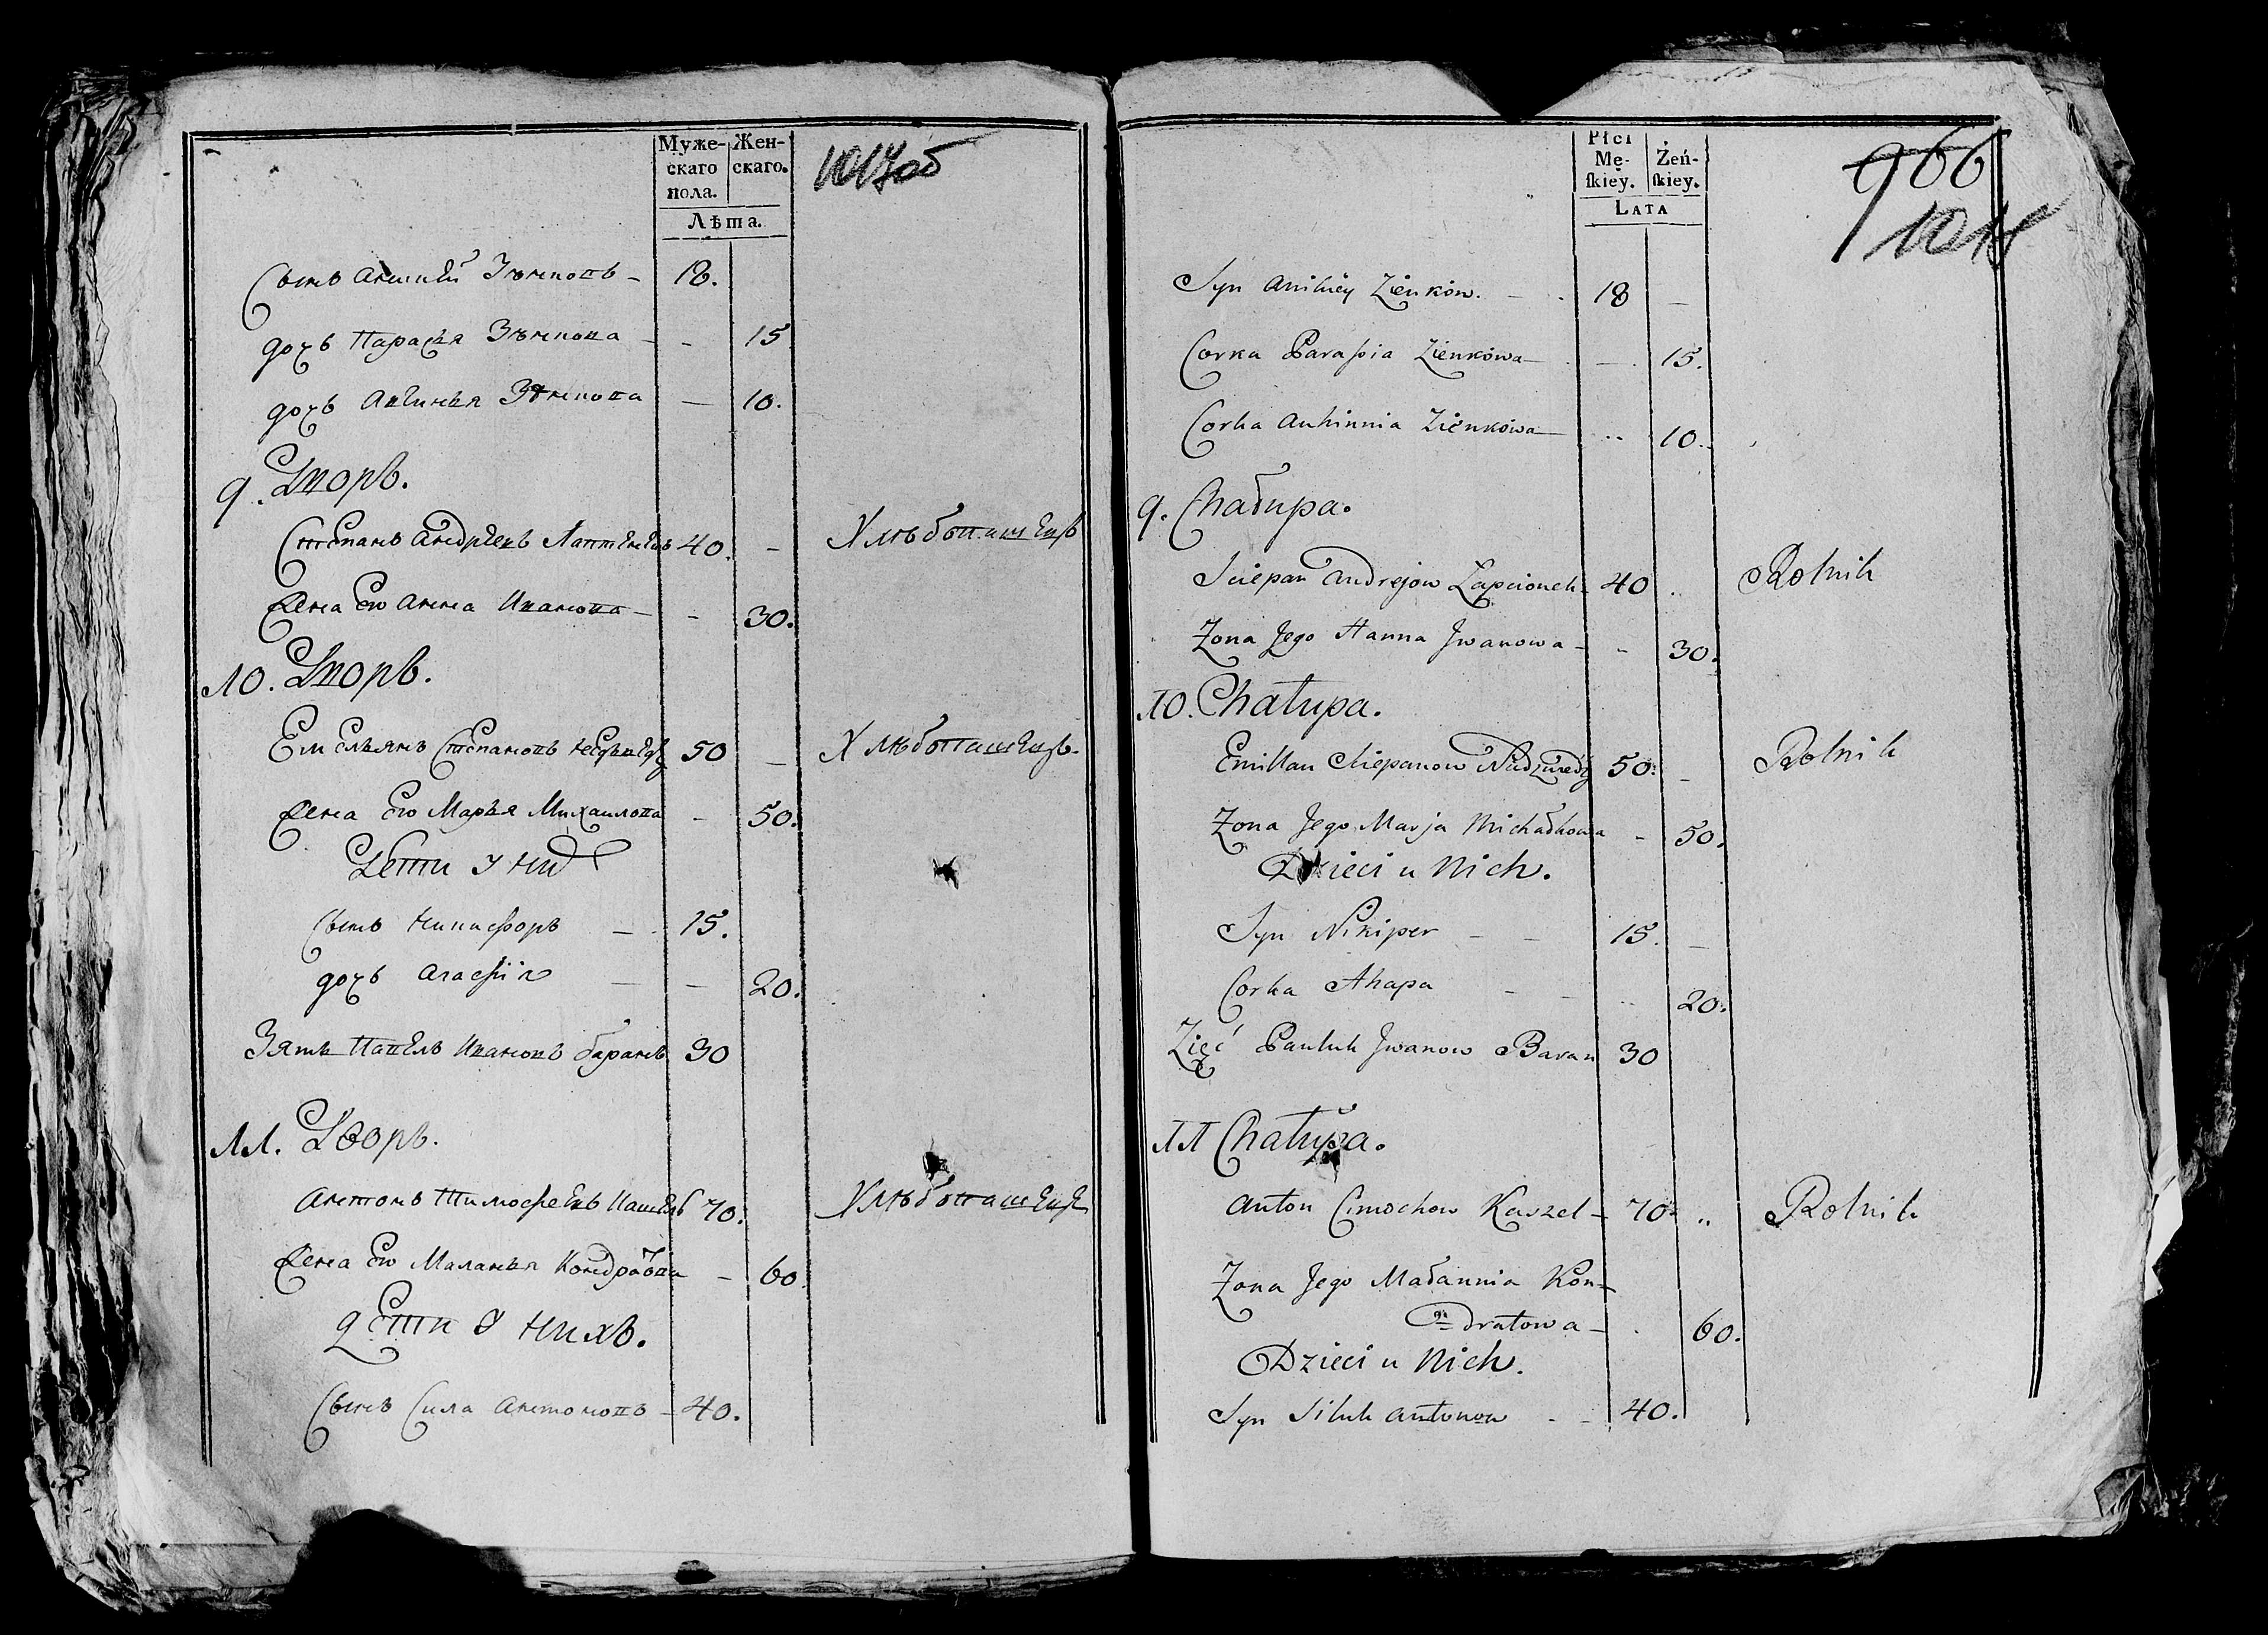 Муже-
скаго
пола.
Жен-
скаго.
Лѣта.
1017об
Сынъ Аникѣй Зѣнковъ – 18.
дочь Парасья Зѣнкова – – 15
дочь Авгинья Зѣнкова — 10.
9. Дворъ.
Степанъ Андрѣевъ Лаптенекъ 40. – Хлѣбопашецъ
Жена Его Анна Иванова – – 30.
10. Дворъ.
Емельянъ Степановъ 50 – Хлѣбопашецъ.
Жена Его Марья Михаилова – 50.
Дети у них
Сынъ Никифоръ – 15.
дочь Агафія — – 20.
Зять Павелъ Ивановъ баранъ 30
11. Дворъ.
Антонъ Тимофеевъ 70. Хлѣбопашецъ
Жена Его Маланья Кондратова – 60.
дети у нихъ.
Сынъ Сила Антоновъ – 40.
Płci
Mę-
ſkiey.
Żeń-
ſkiey.
Lata
966
1018
Syn Anikiey Zienków. – 18 –
Corka Parasia Zienkówa — 15.
Corka Auhinnia Zienkówa — 10.
9. Chałupa.
Sciepan Andrejow Łapcionek 40 Rolnik
Zona Jego Hanna Jwanowa – – 30.
10. Chałupa.
Emillan Sciepanow Niedzwiedź 50. – Rolnik
Zona Jego Marja Michałkowa – 50.
Dzieci u Nich.
Syn Nikiper – – 15. –
Corka Ahapa – – 20.
Zięć Pauluk Jwanow Baran 30
11 Chałupa.
Anton Cimochow Kaszel – 70 Rolnik
Zona Jego Małannia Kon-
dratowa – 60.
Dzieci u Nich.
Syn Siluk Antonow – – 40.